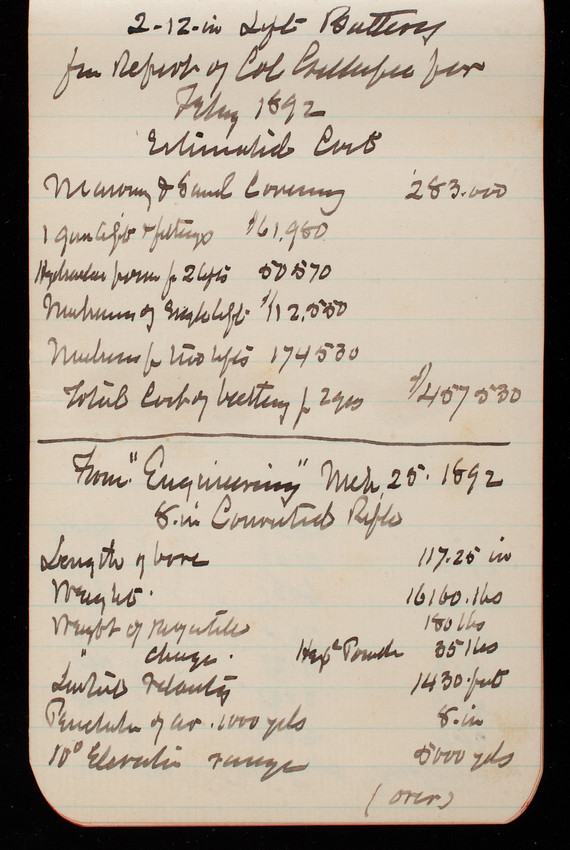 2-12-in Lift Battery
from Report of Col for
Feby 1892
Estimated Cost
Masonry & Sand Covering 283.000
1 gun lift & fittings $61,980
Hydraulic power for 2 lifts 50570
of Single lift $112,550
for two lifts 174530
Total Cost of battery for 2 guns $457530
From "Engineering" Mch 25. 1892
8.in Converted Rifle
Length of bore 117.25 in
Weight. 16160.lbs
Weight of Projectile 180 lbs
" charge. Hexl Powder 35 lbs
Initial Velocity 1430.feet
Penetratn of at. 1000 yds 8.in
10° Elevatin range 5000 yds
(over)